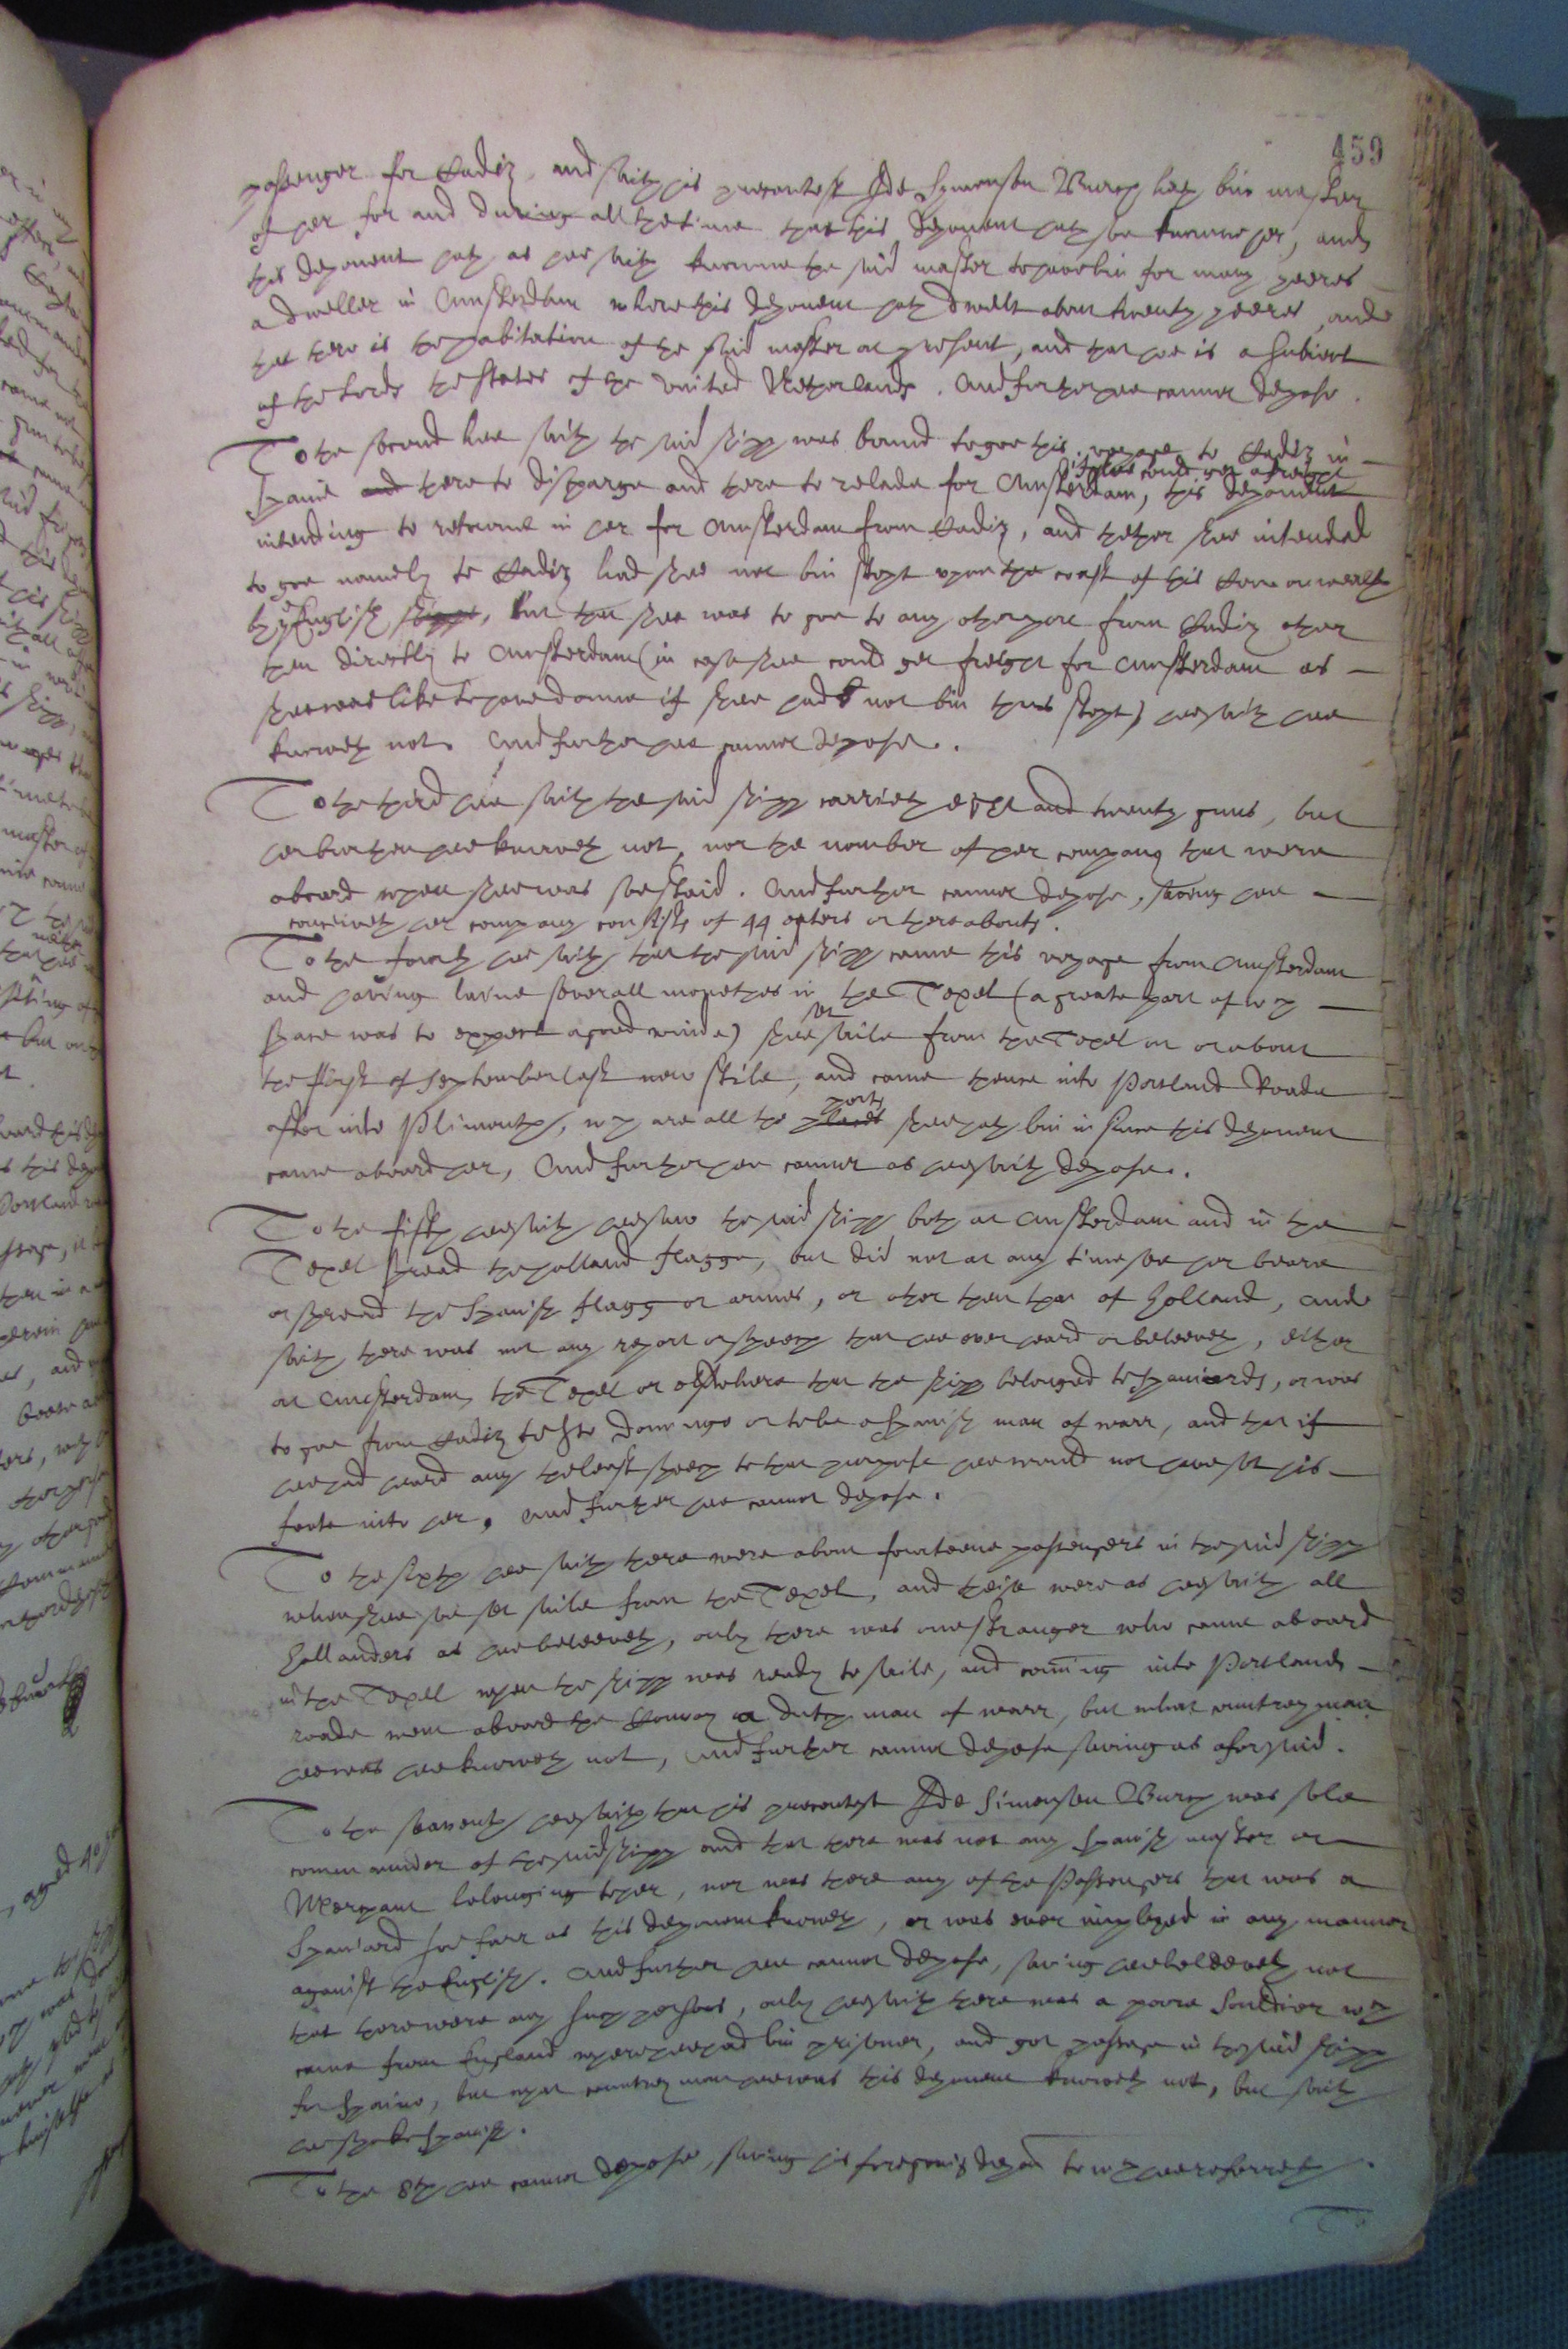 459
passenger for Cadiz, and saith his precontest Ide Symonson Vurch hath bin master
of her for and during all the time that this deponent hath soe knowne her, and
this deponent hath as hee saith knowne the said master to have bin for many yeeres
a dweller in Amsterdam where this deponent hath dwelt about twenty yeeres, and
that there is the habitation of the said master at present, and that hee is a subiect
of the Lords the States of the United Netherlands. And further hee cannot depose.
To the second hee saith the said shipp was bound to goe this voyage to Cadiz in
if shee could get a freight
Spaine and there to discharge and there to relade for Amsterdam, this deponent
intending to returne in her for Amsterdam from Cadiz, and thether shee intended
to goe namely to Cadiz had shee not bin stopt upon the coast of this Common wealth
by ye English shipps, but that shee was to goe to any other port from Cadiz other
then directly to Amsterdam (in case shee could get freight for Amsterdam as
shee was like to have donne if shee had not bin thus stopt) hee saith hee
knoweth not. And further hee cannot depose.
To the third hee saith the said shipp carrieth eight and twenty guns, but
her burthen hee knoweth not, nor the number of her company that were
aboard when shee was soe staid. And further cannot depose, saving hee
conceiveth her company consists of 44 or thereabouts.
To the fourth hee saith that the said shipp came this voyage from Amsterdam
and having laine severall monethes in the Texel (a greate part of wch
space was to expect a good winde) shee set saile from the Texel on or about
the first of September last new stile, and came thence into Portland Roade
after into Plimouth, wch are all the places ports shee hath bin in since this deponent
came aboard her, And further hee cannot as hee saith depose.
To the fifth hee saith hee saw the said shipp both at Amsterdam and in the
Texel spread the holland flagge, but did not at any time see her beare
or spread the Spanish flagg or armes, or other then that of Holland, and
saith there was not any report or speech that hee ever heard or beleeveth, either
at Amsterdam, the Texel or elswhere that the shipp belonged to Spaniards, or was
to goe from Cadiz to Sto Domingo or to be a Spanish man of warr, and that if
hee had heard any the least speech to that purpose hee would not have set his
foote into her. And further hee cannot depose.
To the sixth hee saith there were about fourteene passengers in the said shipp
when shee soe set saile from the Texel, and these were as hee saith all
Hollanders as hee beleeveth, only there was one stranger who came aboard
in the Texel when the shipp was ready to saile, and coming into Portland
roade went aboard the Convoy a dutch man of warr, but what cuntrey man
hee was hee knoweth not, And further cannot depose saving as aforesaid.
To the seaventh hee saith that his precontest Ide Simonson Vurch was sole
commander of the said shipp and that there was not any Spanish master or
Merchant belonging to her, nor was there any of the Passengers that was a
Spaniard soe farr as this deponent knoweth, or was ever imployed in any manner
against the English. And further hee cannot depose, saving hee beleeveth not
that there were any such persons, only hee saith there was a poore souldier wch
came from England where hee had bin prisoner, and got passage in the said shipp
for Spaine, but what countrey man hee was this deponent knoweth not, but saith
hee spoke Spanish.
To the 8th hee cannot depose, saving his foregoing deposn to wch hee referreth.
To